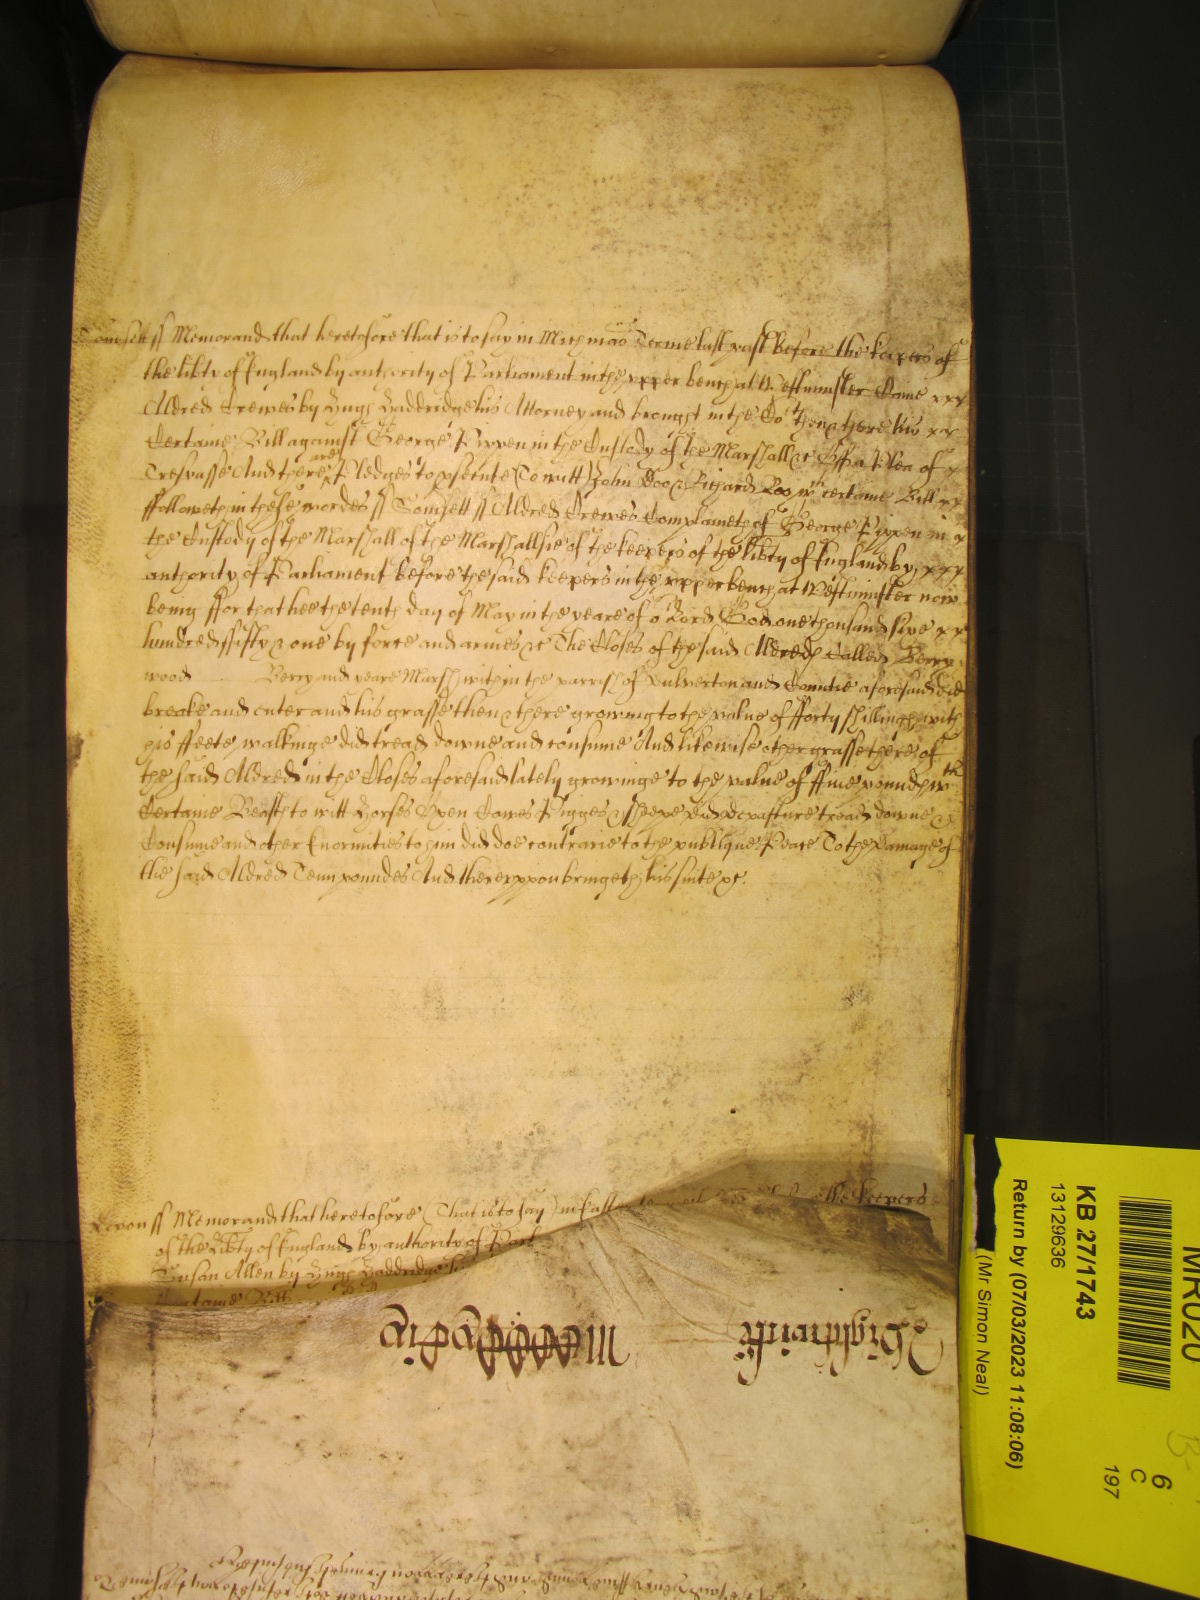 Somsett ss Memorand that heretofore that is to say in Michmas Terme last past before the keepers of
the libty of England by authority of Parliament in the upper bench at Westminster Came
Aldred Crewes by Hugh Hadderidge his Attorney and brought in the Co then & there his
Certaine Bill against George Pippen in the Custody of the Marshall &c Of a Plea of
Trespasse And there are Pledges to psecute (To witt) John Doo & Richard Roo wch certaine Bill
ffolloweth in these wordes ss Somsett ss Aldred Crewes Complaineth of George Pippen in
the Custody of the Marshall of the Marshallsie of the keepers of the libty of England by
authority of Parliament before the said keepers in the upper bench at Westminster now
being ffor that hee the tenth day of May in the yeare of or Lord God one thousand sixe
hundred ffifty & one by force and armes &c The Closes of the said Aldred Called Berry
wood Berry and yeare Marsh within the parrish of Dulverton and Countie aforesaid did
breake and enter and his grasse then & there growing to the value of fforty shillings with
his ffeete walkinge did tread downe and consume And likewise other grasse there of
the said Aldred in the Closes aforesaid lately growinge to the value of ffive pounds wth
Certaine Beasts to witt Horses Oxen Cowes Pigges & Sheepe did depasture tread downe &
Consume and other Enormities to him did doe contrarie to the publique Peace To the Damage of
the said Aldred Tenn pounds And thereuppon bringeth his suite &c.
Devon ss Memorand that heretofore (That is to say) in East the keepers
of the Libty of England by authority of Parl
Susan Allen by Hugh Hadderidge
Certaine Bill
Wightwicke
MR020
KB 27/1743
13129636
Return by (07/03/2023 11:08:06)
(Mr Simon Neal)
6
C
197